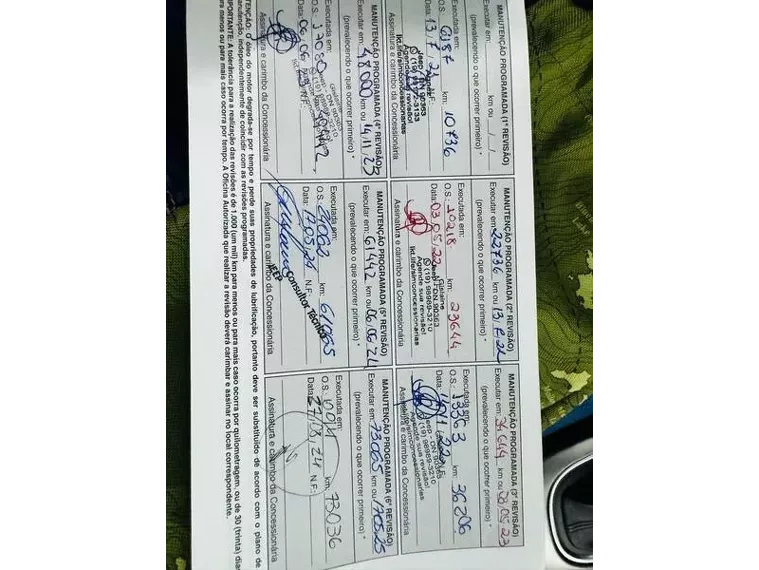 MANUTENÇÃO PROGRAMADA (1ª REVISÃO)
Executar em: km ou / /
(prevalecendo o que ocorrer primeiro) *
Executada em:
O.S.: 6187 km: 10736
Data: 13.7.21 N.F.:
lid.life/simconcessionarias
Assinatura e carimbo da Concessionária
MANUTENÇÃO PROGRAMADA (2ª REVISÃO)
Executar em: 22736 km ou 13.7.22
(prevalecendo o que ocorrer primeiro) *
Executada em:
O.S.: 10218 km: 23644
Data: 03.05.22
Gislaine
Jeep - FDN 90363
Agende sua revisão!
(19) 98989-3210
lid.life/simconcessionarias
Assinatura e carimbo da Concessionária
MANUTENÇÃO PROGRAMADA (3ª REVISÃO)
Executar em: 35644 km ou 03.05.23
(prevalecendo o que ocorrer primeiro) *
Executada em:
O.S.: 13363 km: 36206
(19) 98989-3210
Agende sua revisão!
Assinatura e carimbo da Concessionária
MANUTENÇÃO PROGRAMADA (4ª REVISÃO)
Executar em: 48000 km ou 14.11.23
(prevalecendo o que ocorrer primeiro) *
Executada em:
O.S.: 17080
Data: 06.06 N.F.:
Assinatura e carimbo da Concessionária
MANUTENÇÃO PROGRAMADA (5ª REVISÃO)
Executar em: 61442 km ou 06.06.24
(prevalecendo o que ocorrer primeiro) *
Executada em:
O.S.: km: 61065
Data: 17.05.24 N.F.:
Consultor Técnico
JEEP
Assinatura e carimbo da Concessionária
MANUTENÇÃO PROGRAMADA (6ª REVISÃO)
Executar em: 73065 km ou 17.05.25
(prevalecendo o que ocorrer primeiro) *
Executada em:
O.S.: km: 73036
Data: 27.09.24 N.F.:
Assinatura e carimbo da Concessionária
ATENÇÃO: O óleo do motor degrada-se por tempo e perde suas propriedades de lubrificação, portanto deve ser substituído de acordo com o plano de
manutenção, independentemente de coincidir com as revisões programadas.
IMPORTANTE: A tolerância para a realização das revisões é de 1.000 (um mil) km para menos ou para mais caso ocorra por quilometragem, ou de 30 (trinta) dias
para menos ou para mais caso ocorra por tempo. A Oficina Autorizada que realizar a revisão deverá carimbar e assinar no local correspondente.